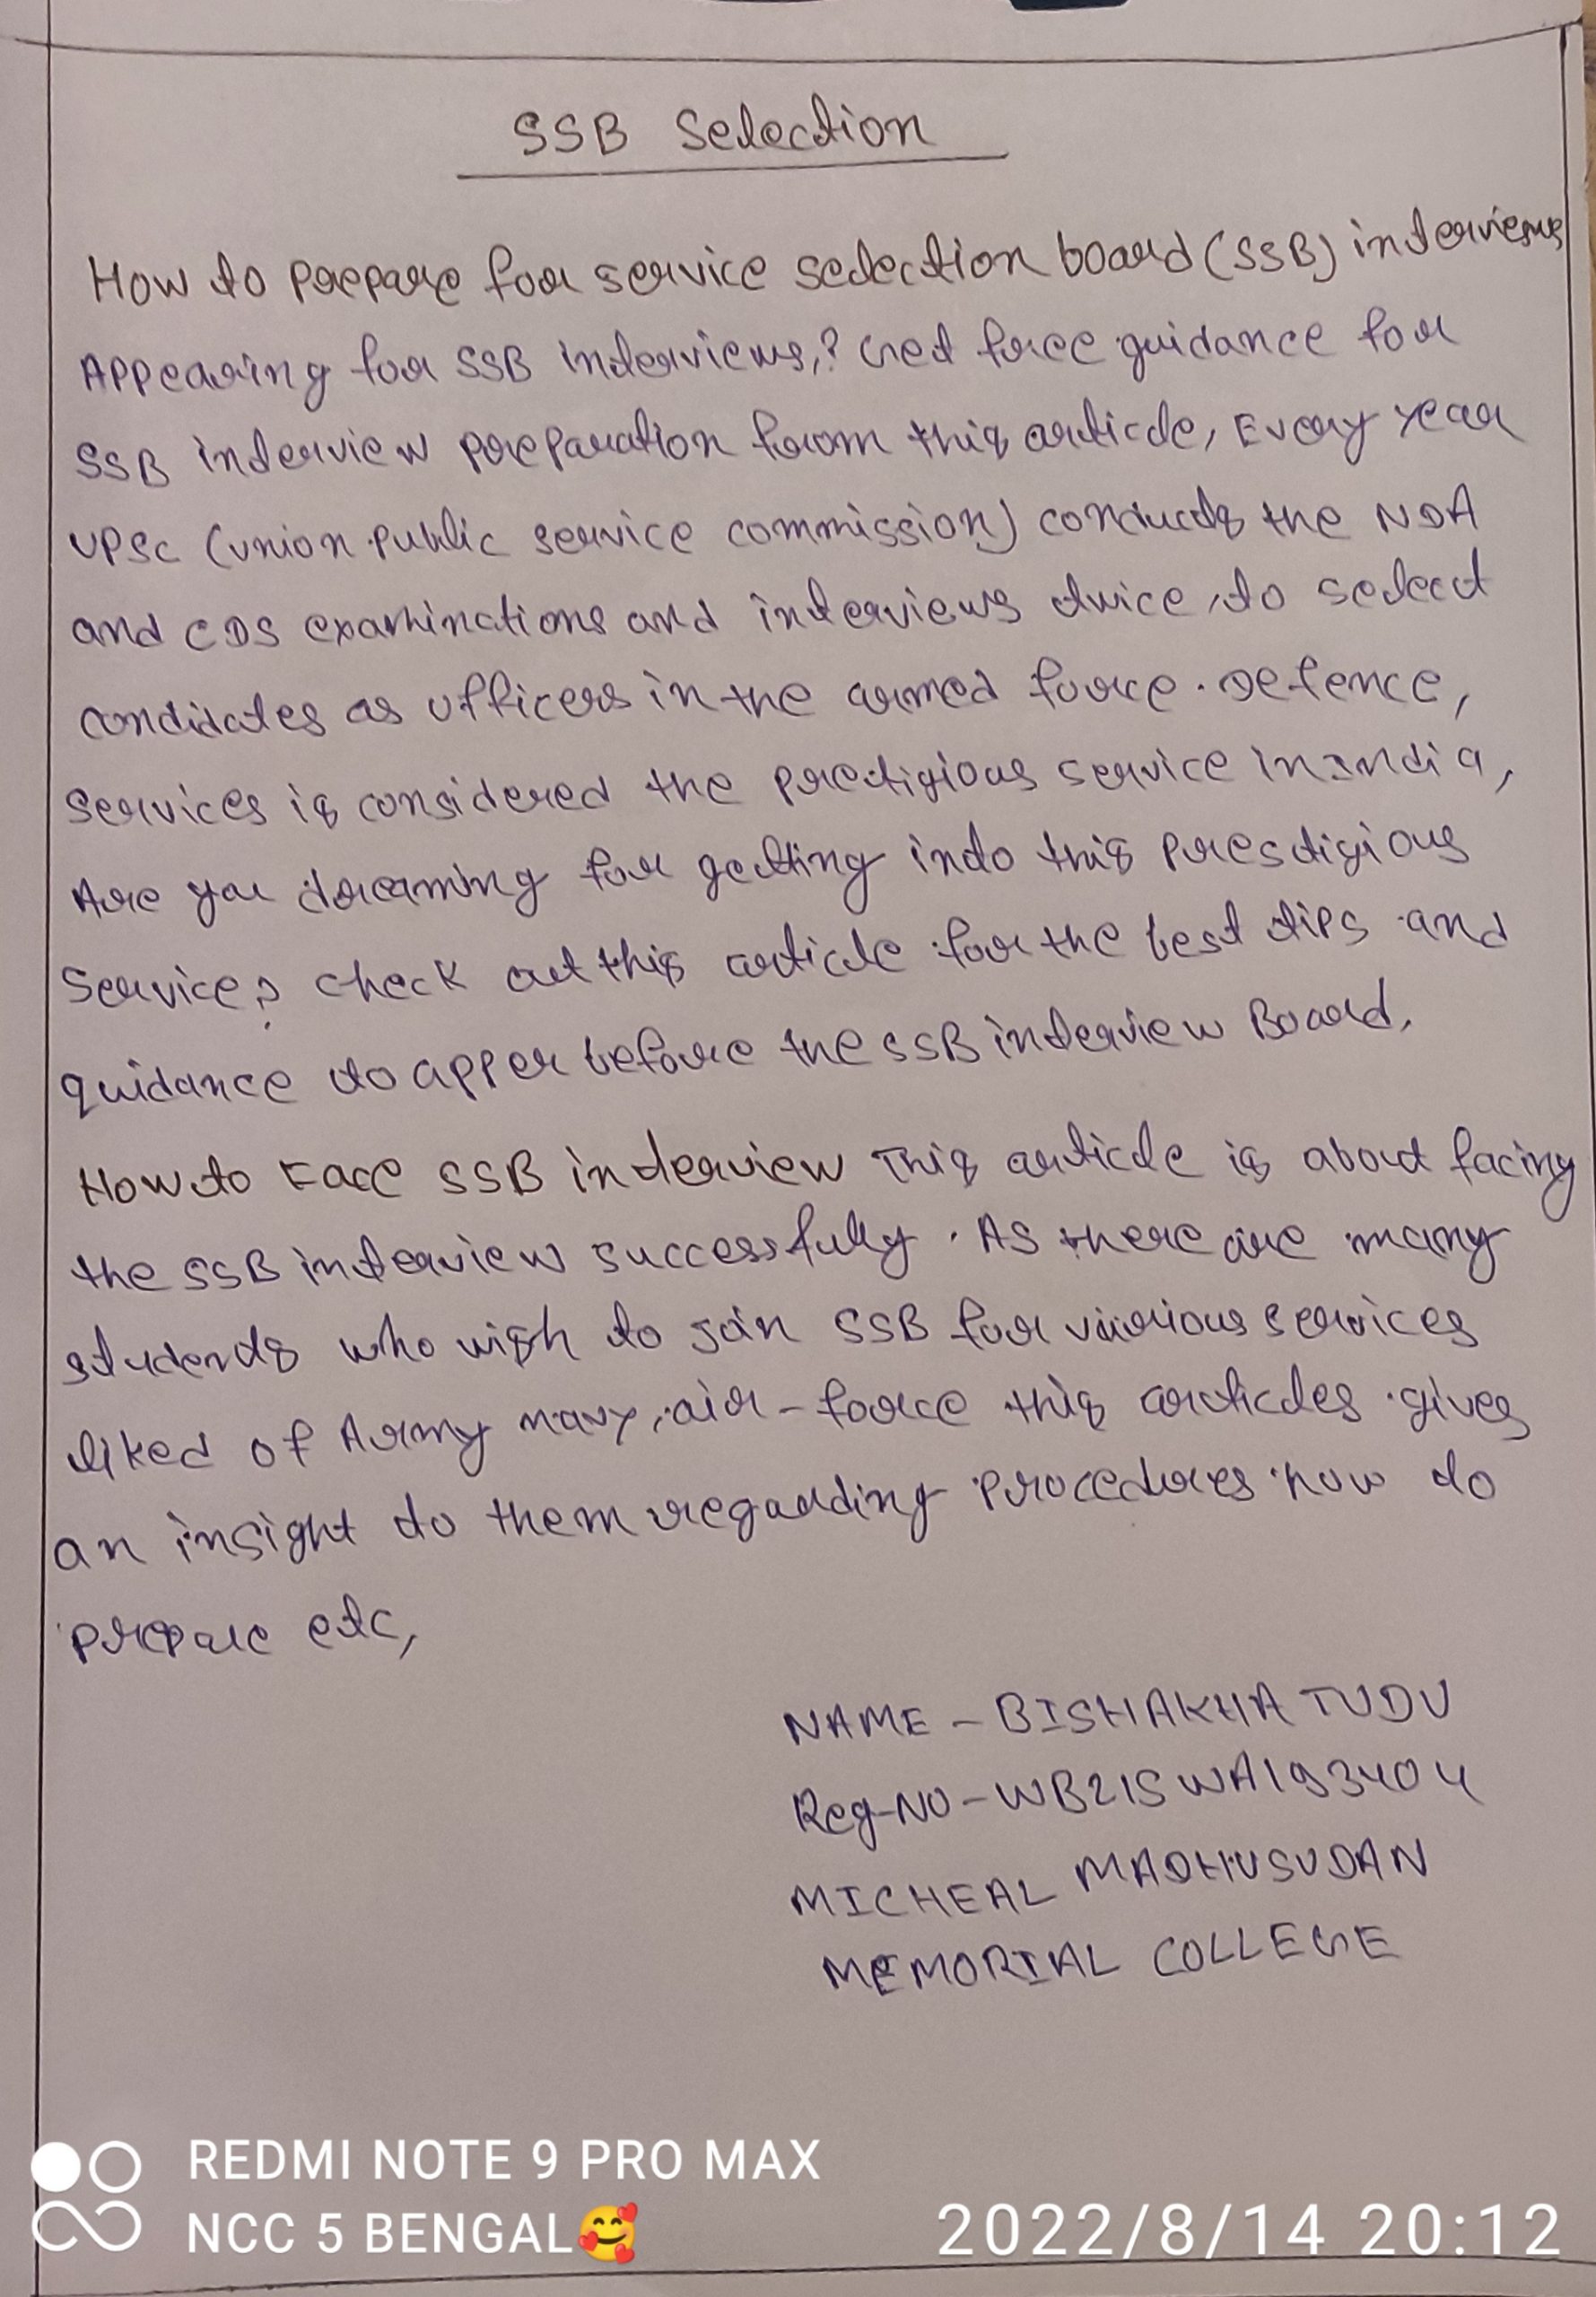 SSB Selection
How to prepare for service selection board (SSB) interviews
Appearing for SSB interviews,? Get free guidance for
SSB interview preparation from this article, Every year
UPSC (union public service commission) conducts the NDA
and CDS examinations and interviews twice, to select
candidates as officers in the armed force. Defence,
services is considered the prectigious service in India,
Are you dreaming for getting into this prestigious
service? check out this article for the best tips and
guidance to apper before the SSB interview Board,
How to Face SSB interview This article is about facing
the SSB interview successfully. As there are many
students who wish to join SSB for various services
liked of Army navy, air-force this articles gives
an insight to them regarding procedures how to
prepare etc,
NAME - BISHAKHA TUDU
Reg-NO - WB21SWA193404
MICHEAL MADHUSUDAN
MEMORIAL COLLEGE
REDMI NOTE 9 PRO MAX
NCC 5 BENGAL🥰
2022/8/14 20:12